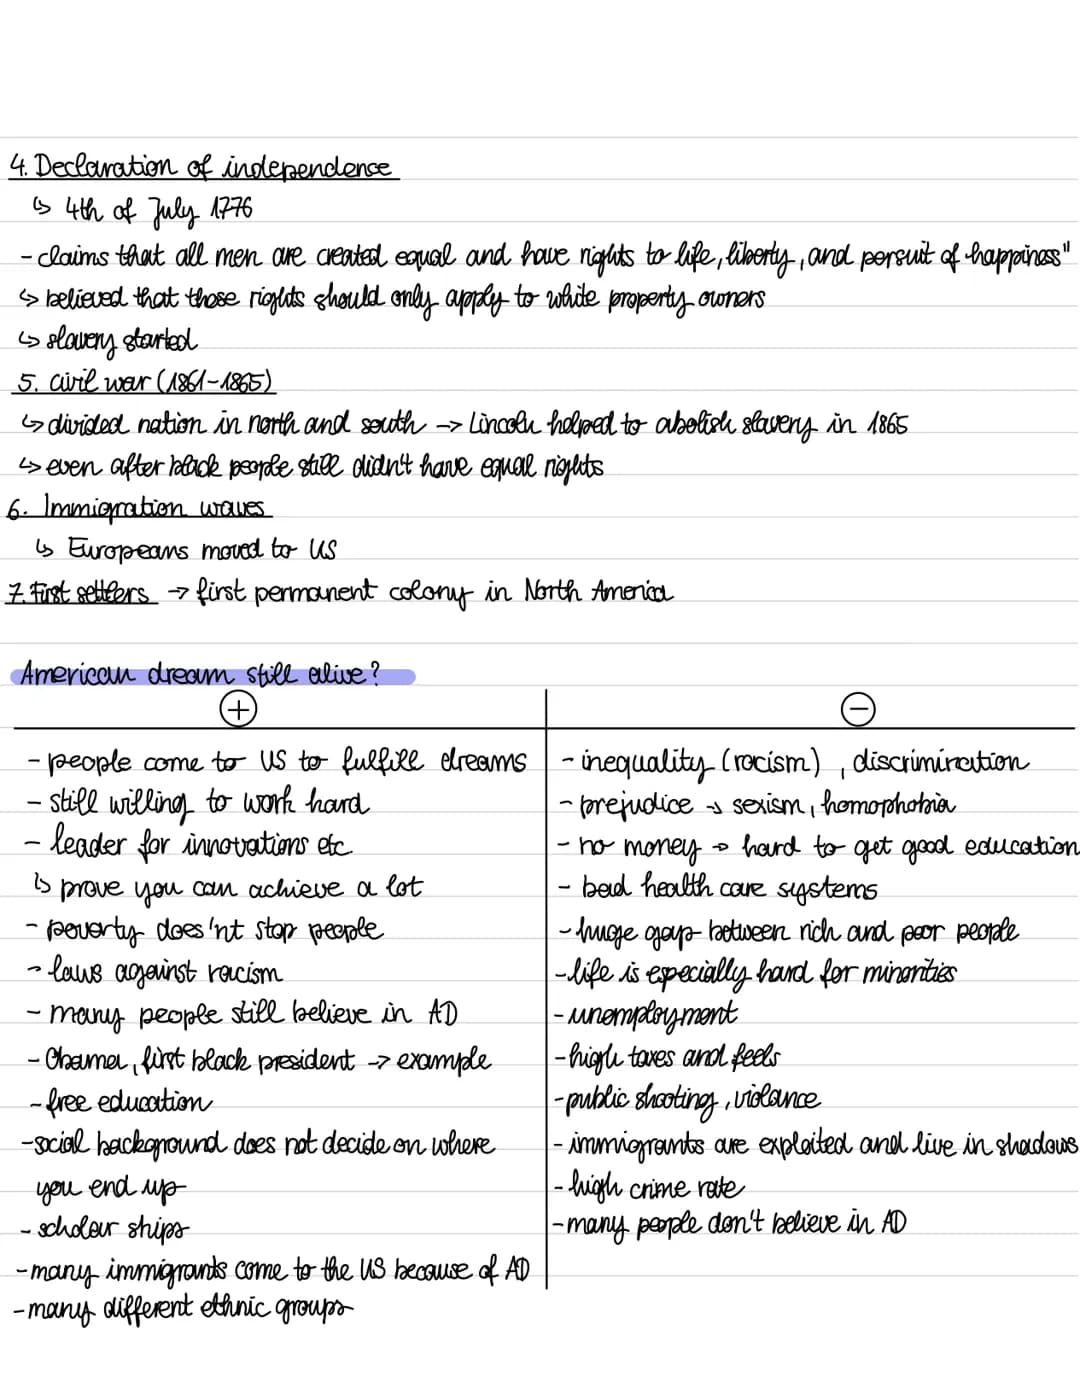 4. Declaration of independence
↳ 4th of July 1776
- claims that all men are created equal and have rights to life, liberty, and persuit of happiness"
↳ believed that those rights should only apply to white property owners
↳ slavery started
5. civil war (1861-1865)
↳ divided nation in north and south -> Lincoln helped to abolish slavery in 1865
↳ even after black people still didn't have equal rights
6. Immigration waves
↳ Europeans moved to US
7. First settlers → first permanent colony in North America
American dream still alive?
+
- people come to US to fulfill dreams
- still willing to work hard
- leader for innovations etc.
↳ prove you can achieve a lot
- poverty does'nt stop people
- laws against racism
- many people still believe in AD
- Obama, first black president → example
- free education
- social background does not decide on where
you end up
- scholar ships
- many immigrants come to the US because of AD
- many different ethnic groups
−
- inequality (racism), discrimination
- prejudice → sexism, homophobia
- no money → hard to get good education
- bad health care systems
- huge gap between rich and poor people
- life is especially hard for minorities
- unemployment
- high taxes and feels
- public shooting, violance
- immigrants are exploited and live in shadows
- high crime rate
- many people don't believe in AD